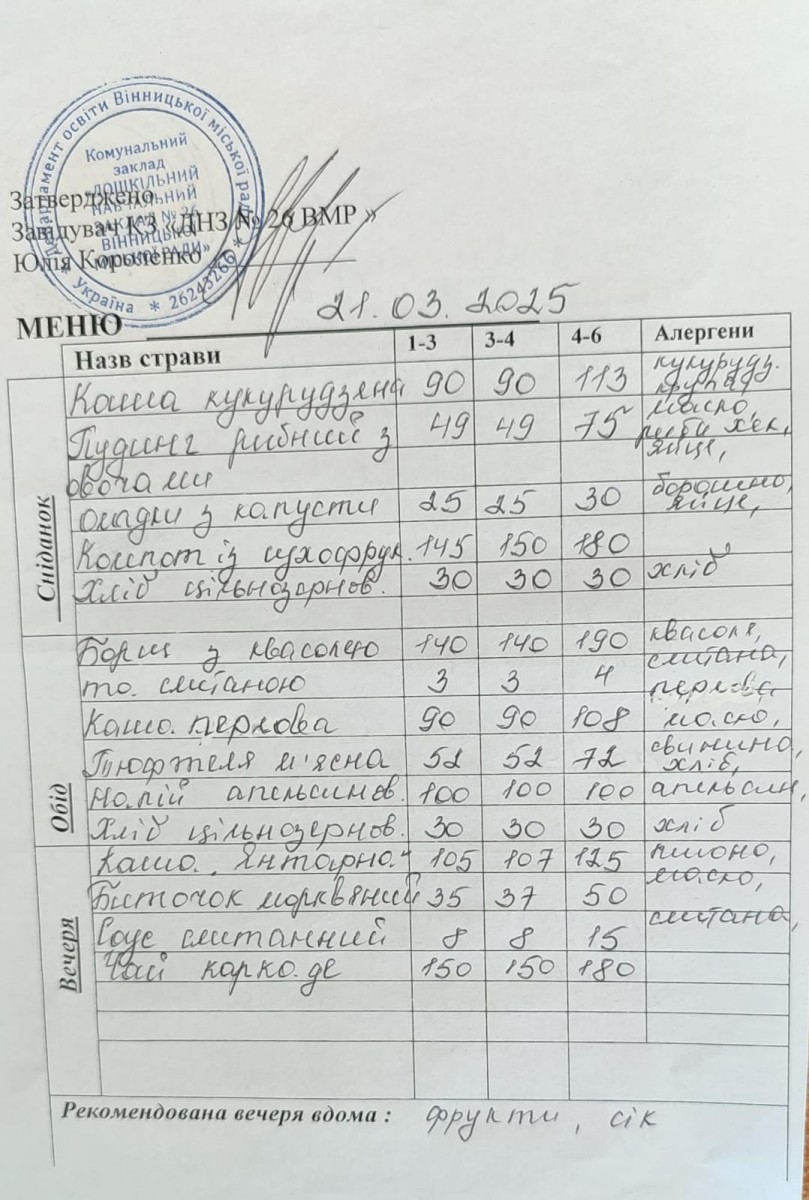 Департамент освіти Вінницької міської ради
* Україна * 26243266 *
Комунальний
заклад
«ДОШКІЛЬНИЙ
НАВЧАЛЬНИЙ
ЗАКЛАД № 26
ВІННИЦЬКОЇ
МІСЬКОЇ РАДИ»
Затверджено
Завідувач КЗ «ДНЗ № 26 ВМР »
Юлія Короленко
МЕНЮ 21.03.2025
Назв страви 1-3 3-4 4-6 Алергени
Сніданок
Каша кукурудзяна 90 90 113 кукурудз. крупа
Пудинг рибний з 49 49 75 масло, риба хек, яйце,
овочами
оладки з капусти 25 25 30 борошно, яйце,
Компот із сухофрук. 145 150 180
Хліб цільнозернов. 30 30 30 хліб
Обід
Борщ з квасолею 140 140 190 квасоля,
та сметаною 3 3 4 сметана,
Каша перлова 90 90 108 перлова масло,
Тюфтеля м'ясна 52 52 72 свинина, хліб,
Напій апельсинов. 100 100 100 апельсин,
Хліб цільнозернов. 30 30 30 хліб
Вечеря
Каша "Янтарна" 105 107 125 пшоно, масло,
Биточок морквяний 35 37 50
Соус сметанний 8 8 15 сметана,
Чай каркаде 150 150 180
Рекомендована вечеря вдома : фрукти, сік